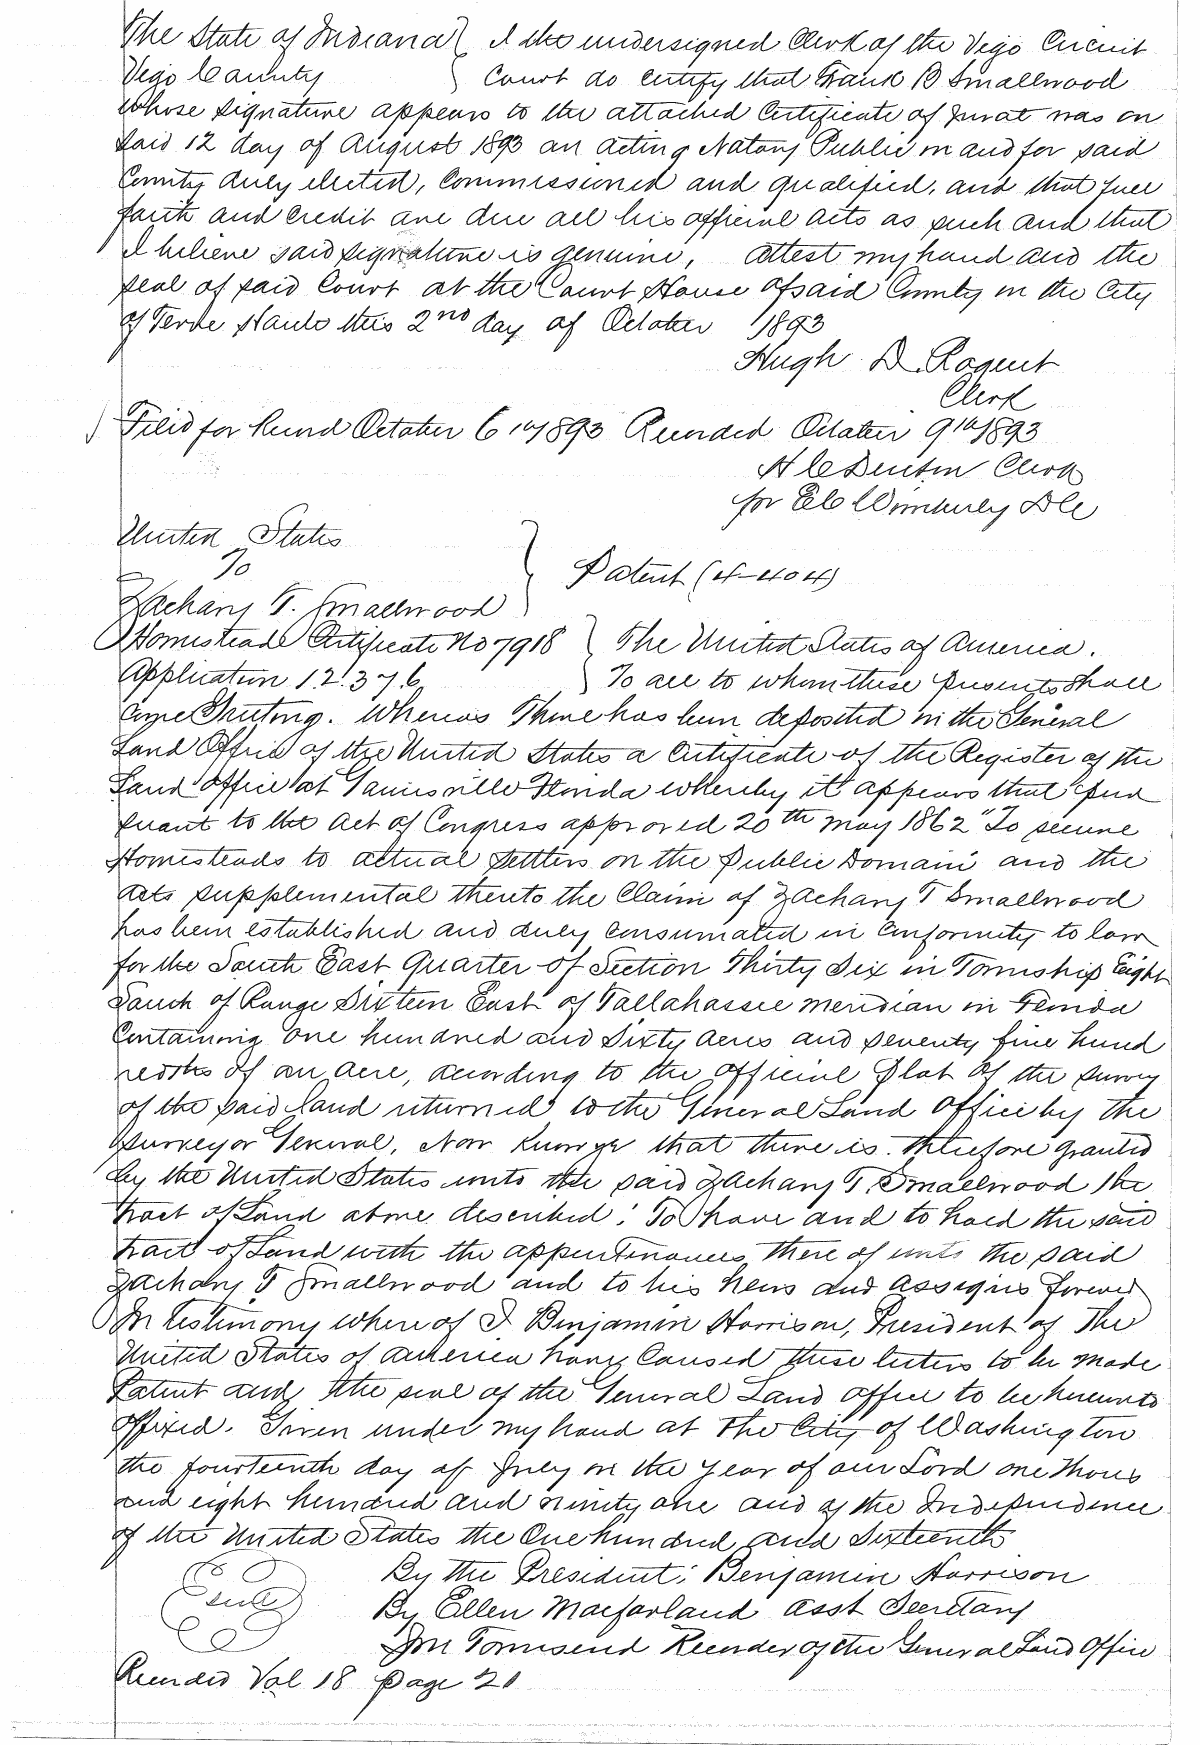 The State of Indiana } I the undersigned Clerk of the Vigo Circuit
Vigo County } Court do certify that Frank B Smallwood
whose signature appears to the attached Certificate of Jurat was on
said 12 day of August 1893 an acting Notary Public in and for said
County duly elected, Commissioned and qualified, and that full
faith and credit are due all his official acts as such and that
I believe said signature is genuine, attest my hand and the
seal of said Court at the Court House of said County in the City
of Terre Haute this 2nd day of October 1893
Hugh D. Roquet
Clerk
Filed for Record October 6th 1893 Recorded October 9th 1893
H C Denton Clerk
for E C Wimberly D C
United States
To } Patent (4-404)
Zachary T. Smallwood
Homestead Certificate No 7918 } The United States of America.
Application 12376 } To all to whom these presents shall
come Greeting. Whereas There has been deposited in the General
Land Office of the United States a Certificate of the Register of the
Land office at Gainesville Florida whereby it appears that pur
suant to the Act of Congress approved 20th May 1862 "To secure
Homesteads to actual settlers on the public Domain and the
acts supplemental thereto the Claim of Zachary T Smallwood
has been established and duly consumated in conformity to law
for the South East Quarter of Section Thirty Six in Township Eight
South of Range Sixteen East of Tallahassee Meridian in Florida
Containing one hundred and Sixty acres and seventy five hund
redths of an acre, according to the official Plat of the survey
of the said land returned to the General Land Office by the
Surveyor General, Now Know ye that there is therefore granted
by the United States unto the said Zachary T. Smallwood the
tract of Land above described: To have and to hold the said
tract of Land with the appurtenances there of unto the said
Zachary T Smallwood and to his heirs and assigns forever
In testimony where of I Benjamin Harrison, President of The
United States of America have Caused these letters to be made
Patent and the seal of the General Land office to be hereunto
affixed. Given under my hand at The City of Washington
the fourteenth day of July in the year of our Lord one thous
and eight hundred and ninety one and of the Independence
of the United States the One hundred and Sixteenth
By the President: Benjamin Harrison
Seal By Ellen Macfarland asst Secretary
J M Townsend Recorder of the General Land Office
Recorded Vol 18 page 21